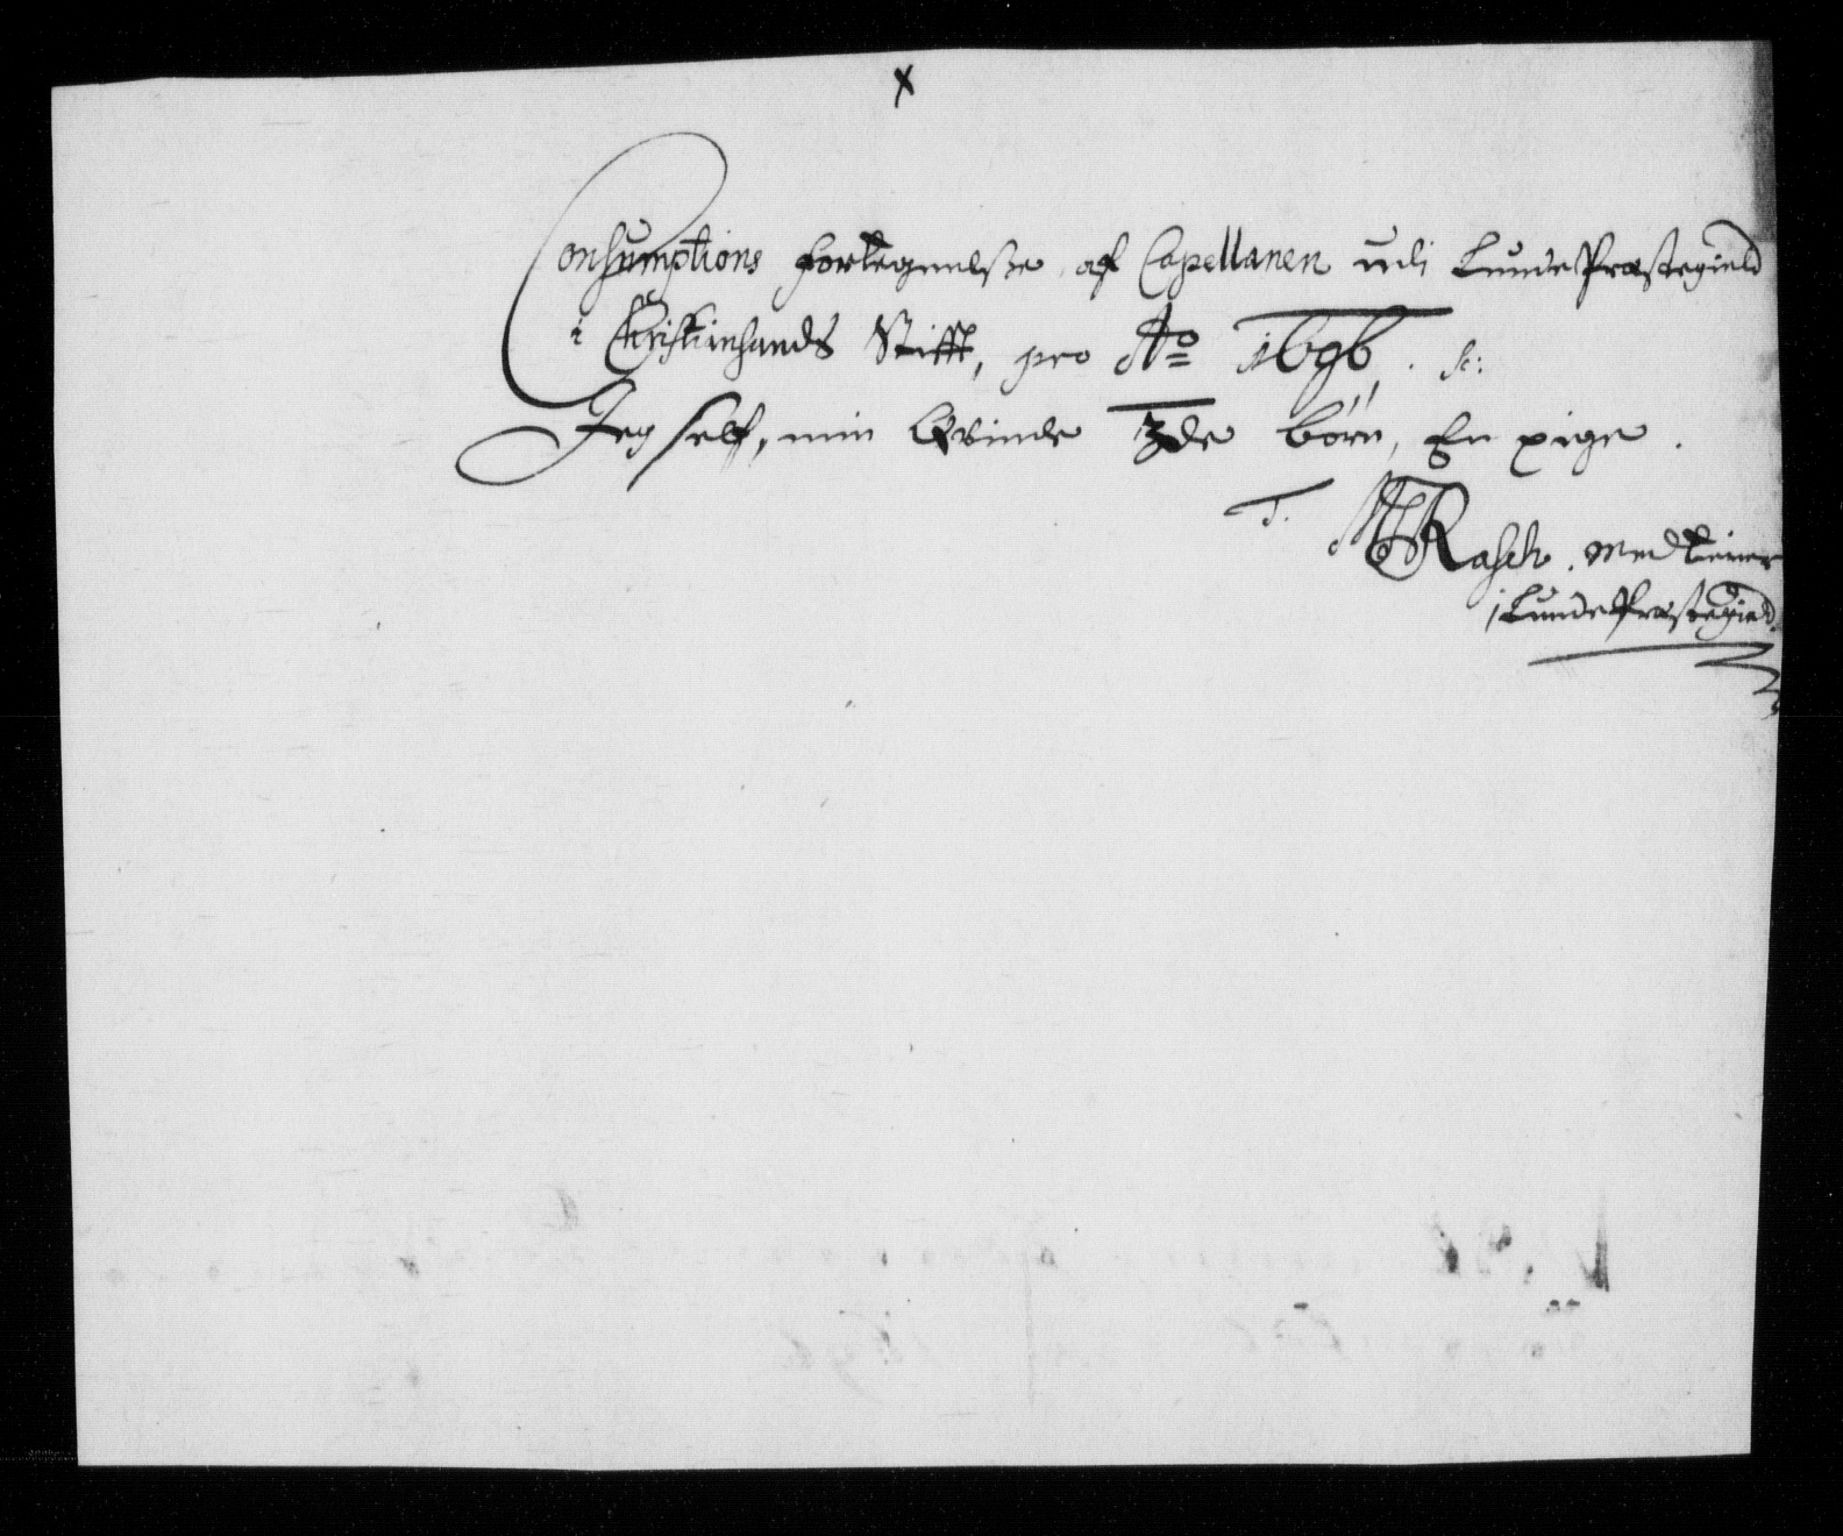 x
Consumptions fortegnelsse af Capellanen udi Lunde Præstegield
i Christiansands Stifft, pro Ao 1696. sc:
Jeg self, min Qvinde 3de börn, En pige.
T. Rasch. Medtiener
i Lunde Præstegield.